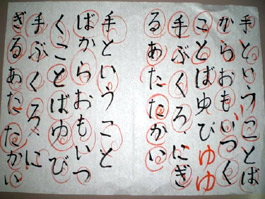 手ということば
からおもいつく
ことばゆびゆゆ
手ぶくろにぎ
るあたたかい
手ということ
ばからおもいつ
くことばゆび
手ぶくろに
ぎるあたたかい